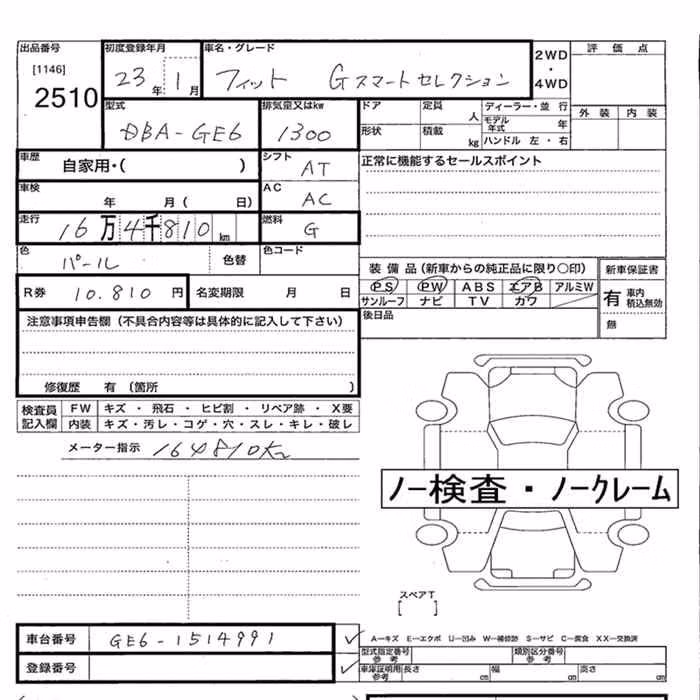 出品番号 初度登録年月 車名・グレード 2WD ・ 4WD 評価点
[1146] 2510 23年 1月 フィット Gスマートセレクション 外装 内装
型式 排気量又はkw ドア 定員 人 ディーラー・並行
DBA-GE6 1300 形状 積載 kg モデル年式 年 ハンドル 左・右
車歴 自家用・( ) シフト AT 正常に機能するセールスポイント
車検 年 月( 日) AC AC
走行 16万4千810km 燃料 G
色 パール 色替 色コード
装備品(新車からの純正品に限り〇印) 新車保証書
R券 10.810円 名変期限 月 日 PS PW ABS エアB アルミW 有 車内積込無効
サンルーフ ナビ TV カワ 無
注意事項申告欄(不具合内容等は具体的に記入して下さい) 後日品
修復歴 有 (箇所 )
検査員記入欄 FW キズ・飛石・ヒビ割・リペア跡・X要
内装 キズ・汚レ・コゲ・穴・スレ・キレ・破レ
メーター指示 164810km
ノー検査・ノークレーム
スペアT
[ ]
車台番号 GE6-1514991 ✓ A−キズ E−エクボ U−凹み W−補修跡 S−サビ C−腐食 XX−交換済
型式指定番号 参考 類別区分番号 参考
登録番号 ✓ 車庫証明用 参考 長さ cm 幅 cm 高さ cm